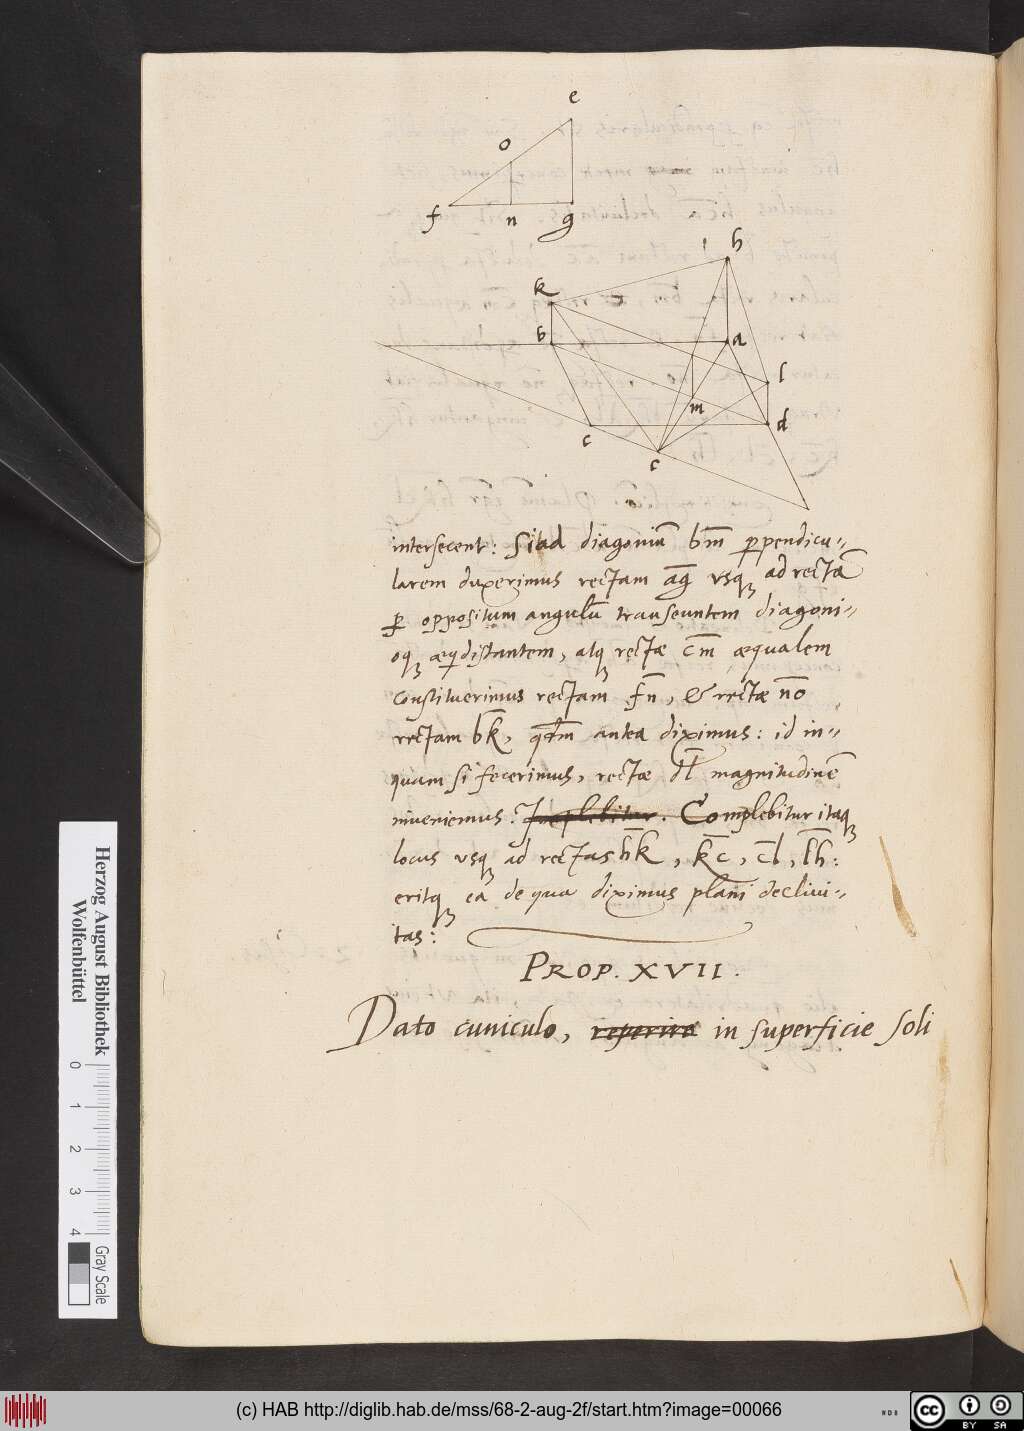 e
o
f n g
h
k
b a
l
m
c d
c
intersecent: Si ad diagoniũ b̅m̅ ꝑpendicu-
larem duxerimus rectam a̅g̅ vsqꝫ ad rectã
ꝑ oppositum angulũ transeuntem diagoni-
oqꝫ æqdistantem, atqꝫ rectæ c̅m̅ æqualem
constituerimus rectam f̅n̅, & rectæ n̅o̅
rectam b̅k̅, antea diximus: id in-
quam si fecerimus, rectæ d̅l̅ magnitudinẽ
inueniemus. Implebitur. Complebitur itaqꝫ
locus vsqꝫ ad rectas h̅k̅, k̅c̅, c̅l̅, l̅h̅:
eritqꝫ ea de qua diximus plani decliui-
tas:
PROP. XVII.
Dato cuniculo, reperire in superficie soli
Herzog August Bibliothek
Wolfenbüttel
0 1 2 3 4
Gray Scale
(c) HAB http://diglib.hab.de/mss/68-2-aug-2f/start.htm?image=00066
cc BY SA